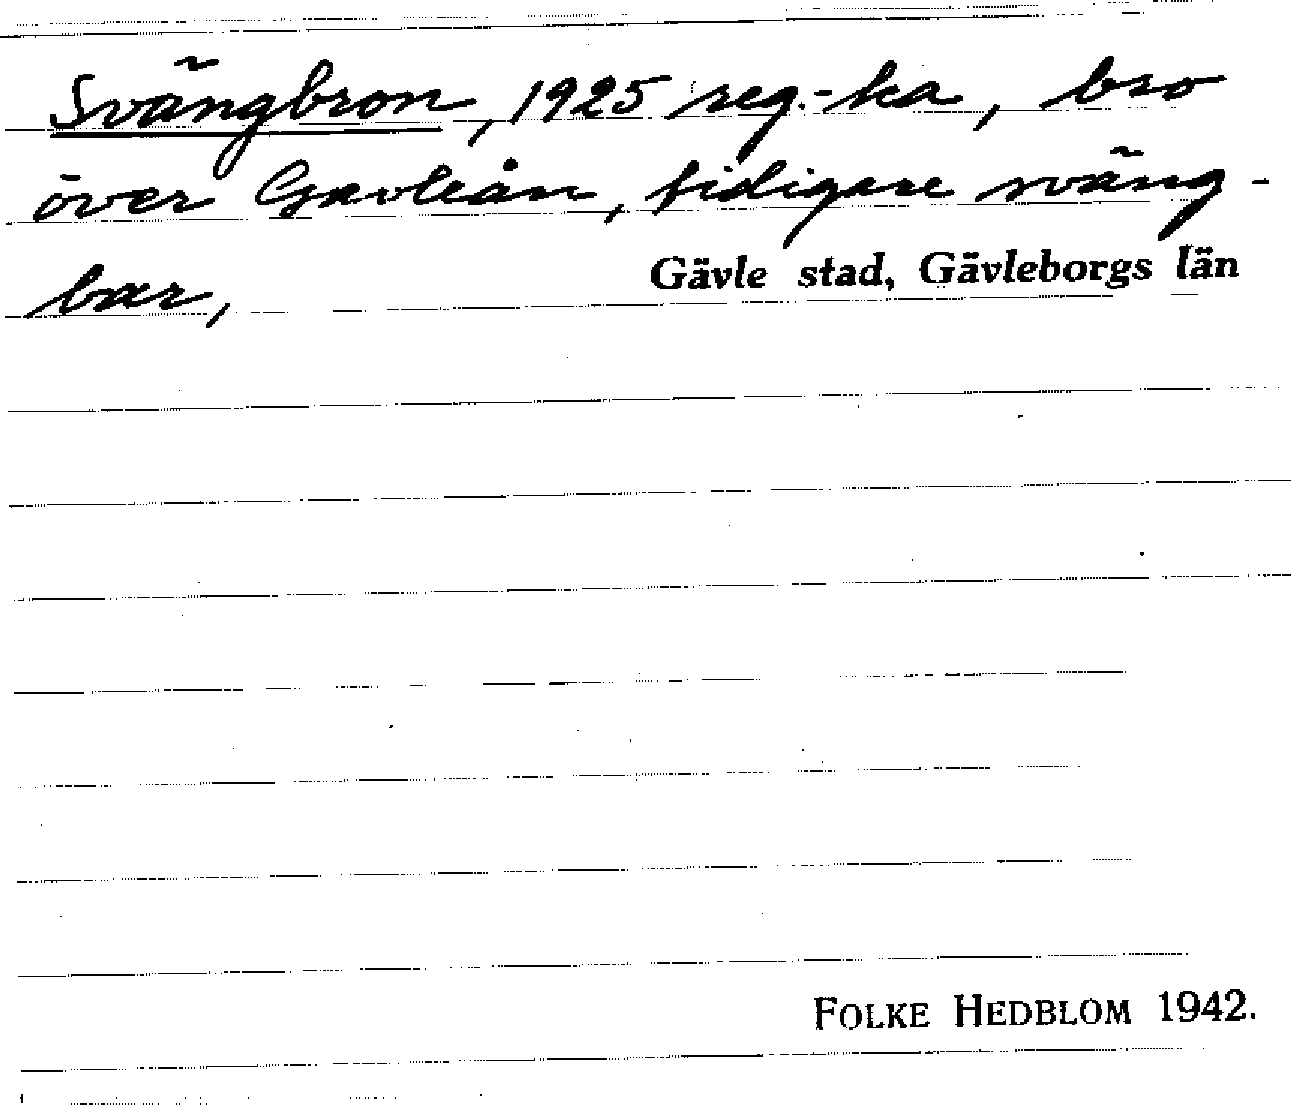 Svängbron, 1925 reg.-ka, bro
över Gavleån, tidigare sväng-
bar,
Gävle stad, Gävleborgs län
FOLKE HEDBLOM 1942.